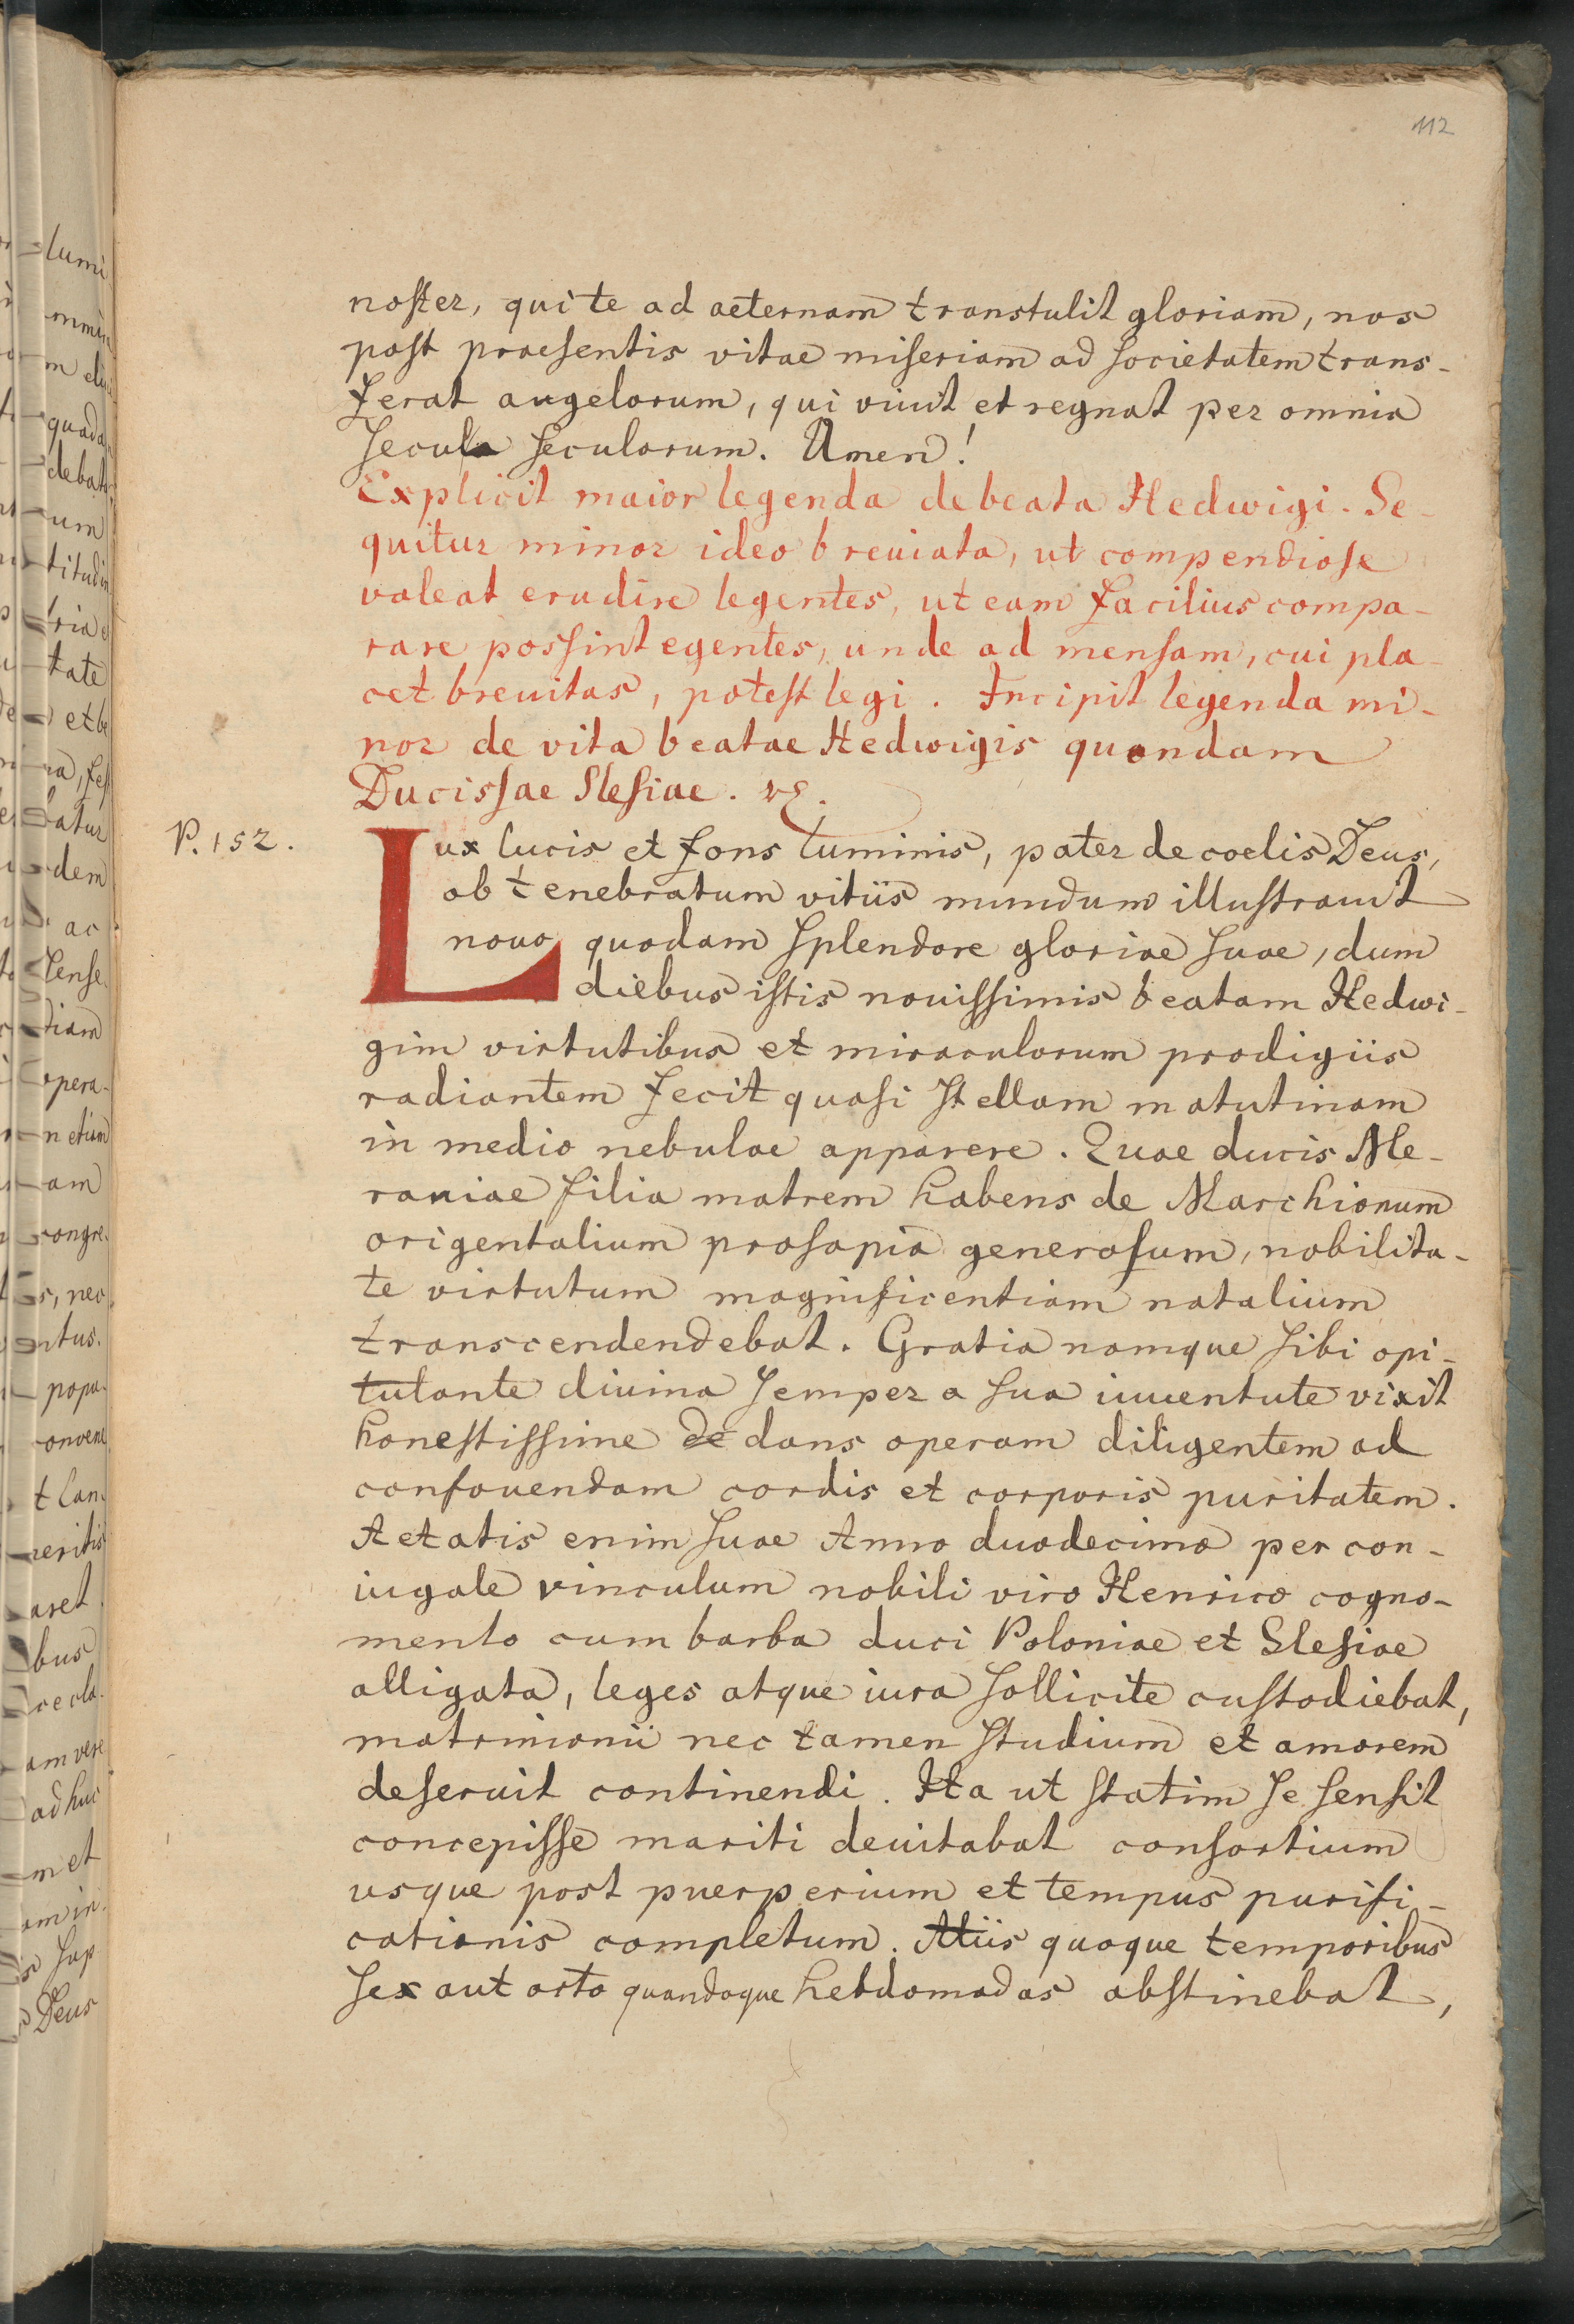 112
noster, qui te ad aeternam transtulit gloriam, nos
post praesentis vitae miseriam ad societatem trans-
ferat angelorum, qui viuit et regnat per omnia
secula seculorum. Amen!
Explicit maior legenda de beata Hedwigi. Se-
quitur minor ideo breuiata, ut compendiose
valeat erudire legentes, ut eam facilius compa-
rare possint egentes, unde ad mensam, cui pla-
cet breuitas, potest legi. Incipit legenda mi-
nor de vita beatae Hedwigis quondam
Ducissae Slesiae.
P. 152.
Lux lucis et fons luminis, pater de coelis Deus,
obtenebratum vitiis mundum illustrauit
nouo quodam splendore gloriae suae, dum
diebus istis nouissimis beatam Hedwi-
gim virtutibus et miraculorum prodigiis
radiantem fecit quasi stellam matutinam
in medio nebulae apparere. Quae ducis Me-
raniae filia matrem habens de Marchionum
origentalium prosapia generosum, nobilita-
te virtutum magnificentiam natalium
transcendendebat. Gratia namque sibi opi-
tulante diuina semper a sua iuuentute vixit
honestissime de dans operam diligentem ad
confouendam cordis et corporis puritatem.
Aetatis enim suae Anno duodecimo per con-
iugale vinculum nobili viro Henrico cogno-
mento cum barba duci Poloniae et Slesiae
alligata, leges atque iura sollicite custodiebat,
matrimonii nec tamen studium et amorem
deseruit continendi. Ita ut statim se sensit
concepisse mariti deuitabat consortium
vsque post puerperium et tempus purifi-
cationis completum. Aliis quoque temporibus
sex aut octo quandoque hebdomadas abstinebat,